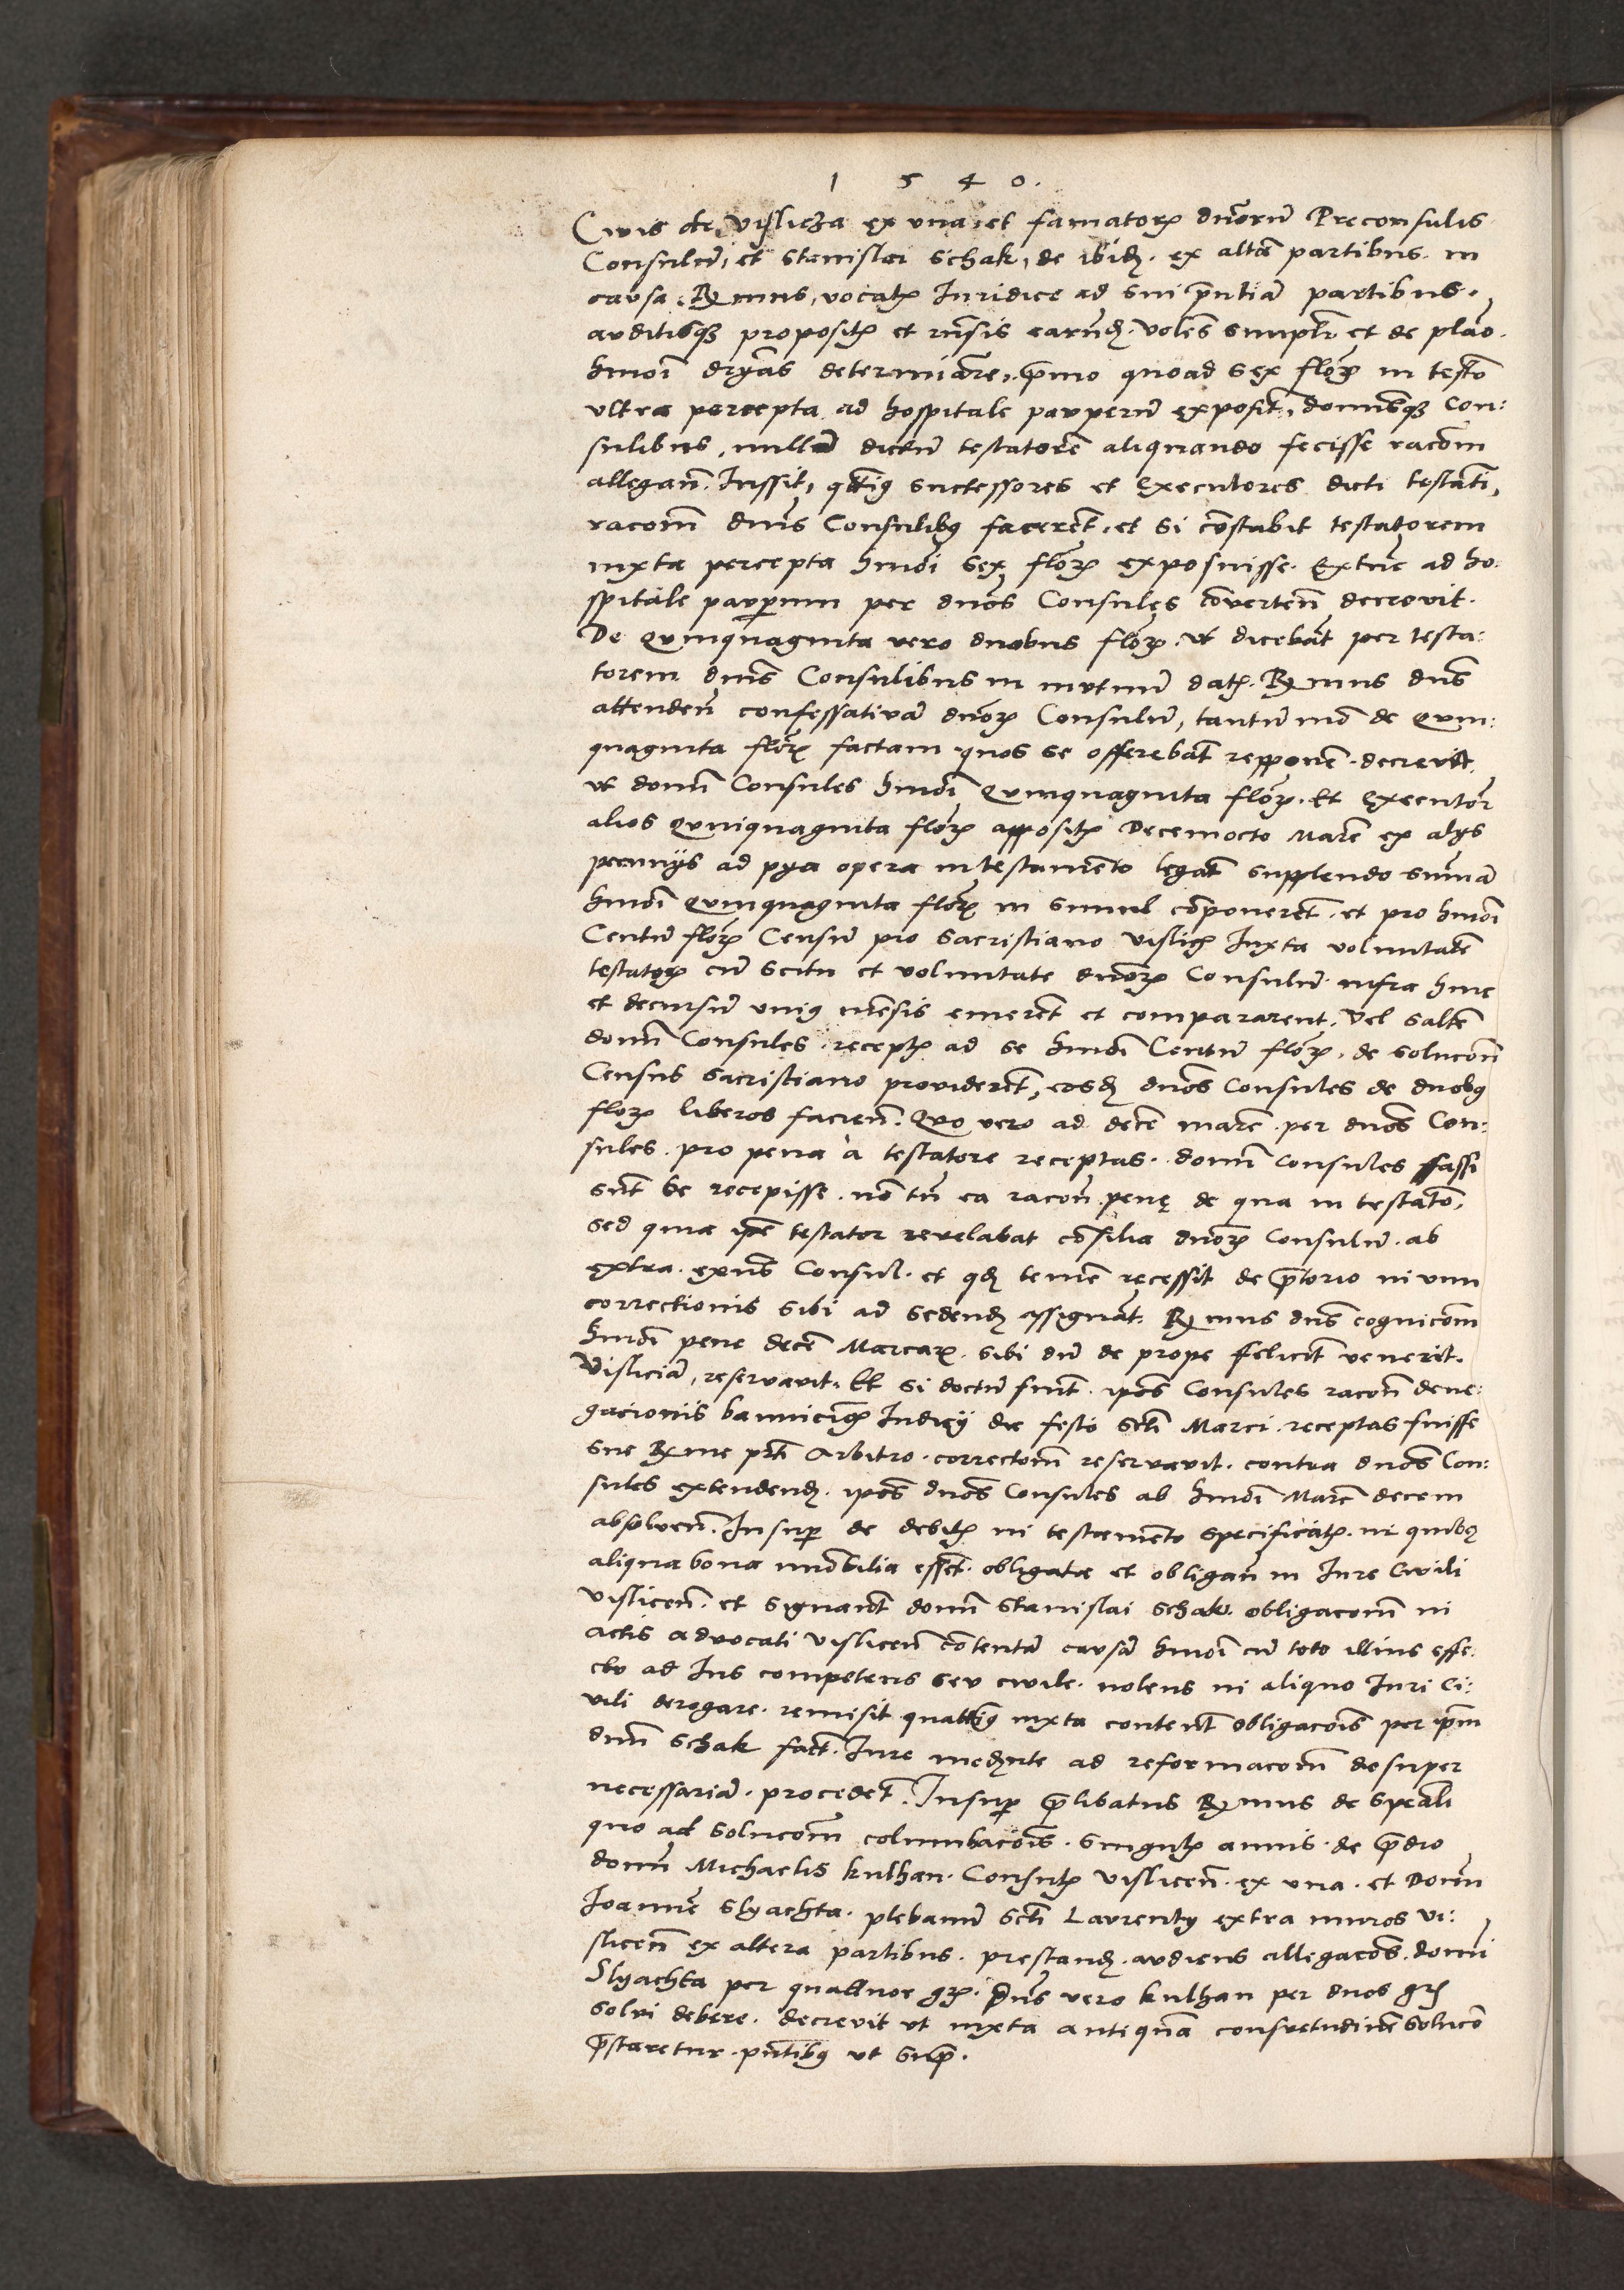 1540.
Civis de Vislicza ex vna, et famatorꝝ dnorū Preconsulis
Consulū, et Stanislai Schak, de ibidē. ex altā partibus. in
causa. Rmus, vocatꝝ Iuridice ad sui pntiā partibus.
auditisqꝫ propositꝝ et rnsis earundē. volēs simplr et de plāo.
hmōi dryās determinare. pmo quoad sex florꝝ in testō
vltra percepta ad hospitale pauperū exposit. domibsqꝫ Con:
sulibus, nullā dictū testatorē aliquando fecisse racōm
allegan̄. Iussit, qtꝰ successores et Executores dicti testāti,
racōm dnis Consulibꝰ facerēt. et si cōstabit testatorem
iuxta percepta hmōi sex florꝝ exposuisse. Extūc ad ho:
spitale pauperum per dnos Consules cōverten̄ decrevit.
De Quinquaginta vero duobus florꝝ. vt dicebāt per testa:
torem dnis Consulibus in mutuū datꝝ. Rmus dns
attenden̄ confessativā dnorꝝ Consulū, tantūmō de Quin:
quaginta florꝝ factam quos se offerebāt repponē. decrevit.
vt domī Consules hmōi Quinquaginta florꝝ. Et Executor
alios Quinquaginta florꝝ appositꝝ Decemocto Marc̄ ex alijs
pecunijs ad pya opera in testamento legāt supplendo sūmā
hmōi Quinquaginta florꝝ in simul cōponerēt. et pro hmōi
Centū florꝝ Censū pro Sacristiano Vislicꝫ Iuxta voluntatē
testatorꝝ cū scitu et voluntate dnorꝝ Consulū. infra hinc
et decursū vniꝰ mēsis emerēt et compararent. Vel saltē
domī Consules receptꝝ ad se hmōi Centū florꝝ. de solucōn
Census sacristiano providerēt, eosdē dnos Consules de duobꝰ
florꝝ liberos facien̄. Quo vero ad decē marc̄ per dnos Con:
sules. pro pena à testatore receptas. domī Consules fassi
sūt se recepisse. nō tn̄ ea racōn penę de qua in testatō,
sed quia ipē testator revelabat cōsilia dnorꝝ Consulū. ab
extra. exns Consul. et qꝫ temē recessit de prtorio ni vnū
correctionis sibi ad sedendū assignāt. Rmus dns cognicōm
hmōi pene decē Marcarꝝ. sibi dū de prope felicit venerit.
Visliciā, reservavit. Et si doctū fuit. ipōs Consules racōn dene:
gacionis bannicinꝝ Iudicij de festo Scti Marci. receptas fuisse
sue Rme ptī Arbitro. correctōm reservavit. contra dnos Con:
sules extendendē. ipōs dnos Consules ab hmōi Marc̄ decem
absolven̄. Insupꝫ de debitꝝ in testamento specificatꝝ. in quibꝰ
aliqua bona immobilia essēt. obligatæ et obligan̄ in Iure Civili
Vislicen̄. et signanter domī Stanislai Schak. obligacōm in
Actis advocati Vislicen̄ cōtentā causā hmōi cū toto illius effe:
ctu ad Ius competens seu civile. nolens in aliquo Iuri Ci:
vili derogare. remisit quattꝰ iuxta content̄ obligacōis per ipm
dnm Schak fact. Iure mediante ad reformacōm desuper
necessariā. procedēt. Insupꝫ prlibatus Rmus de speali
quo ad solucōm columbacōis. singulꝝ annis. de prdio
domī Michaelis Kulhan. Consulꝝ Vislicen̄. ex vna. et Domī
Ioannē Slyachta. plebanū Scti Laurentij extra muros Vi:
slicen̄ ex altera partibus. prestandē. audiens allegacōs. domī
Slyachta per quattuor grꝝ. Dns vero Kulhan per duos grꝝ
solvi debere. decrevit vt iuxta antiquā consuetudinē solucō
prstaretur. pntibꝰ vt supra.